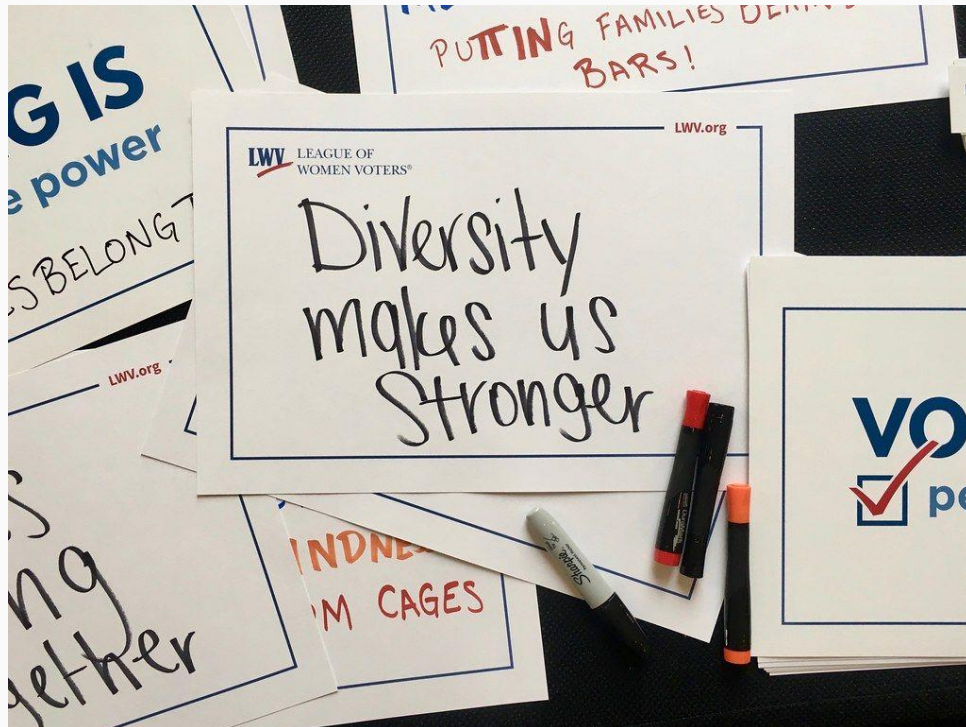 PUTTING FAMILIES
BARS!
G IS
e power
SBELONG
LWV.org
LWV LEAGUE OF
WOMEN VOTERS®
Diversity
makes us
Stronger
LWV.org
ng
gether
INDNE
M CAGES
Sharpie
VO
pe